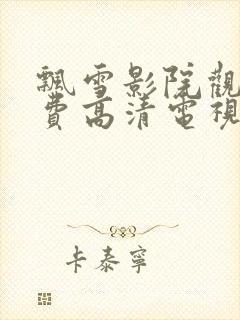 飄雪影院觀
費高清電視
卡泰寧